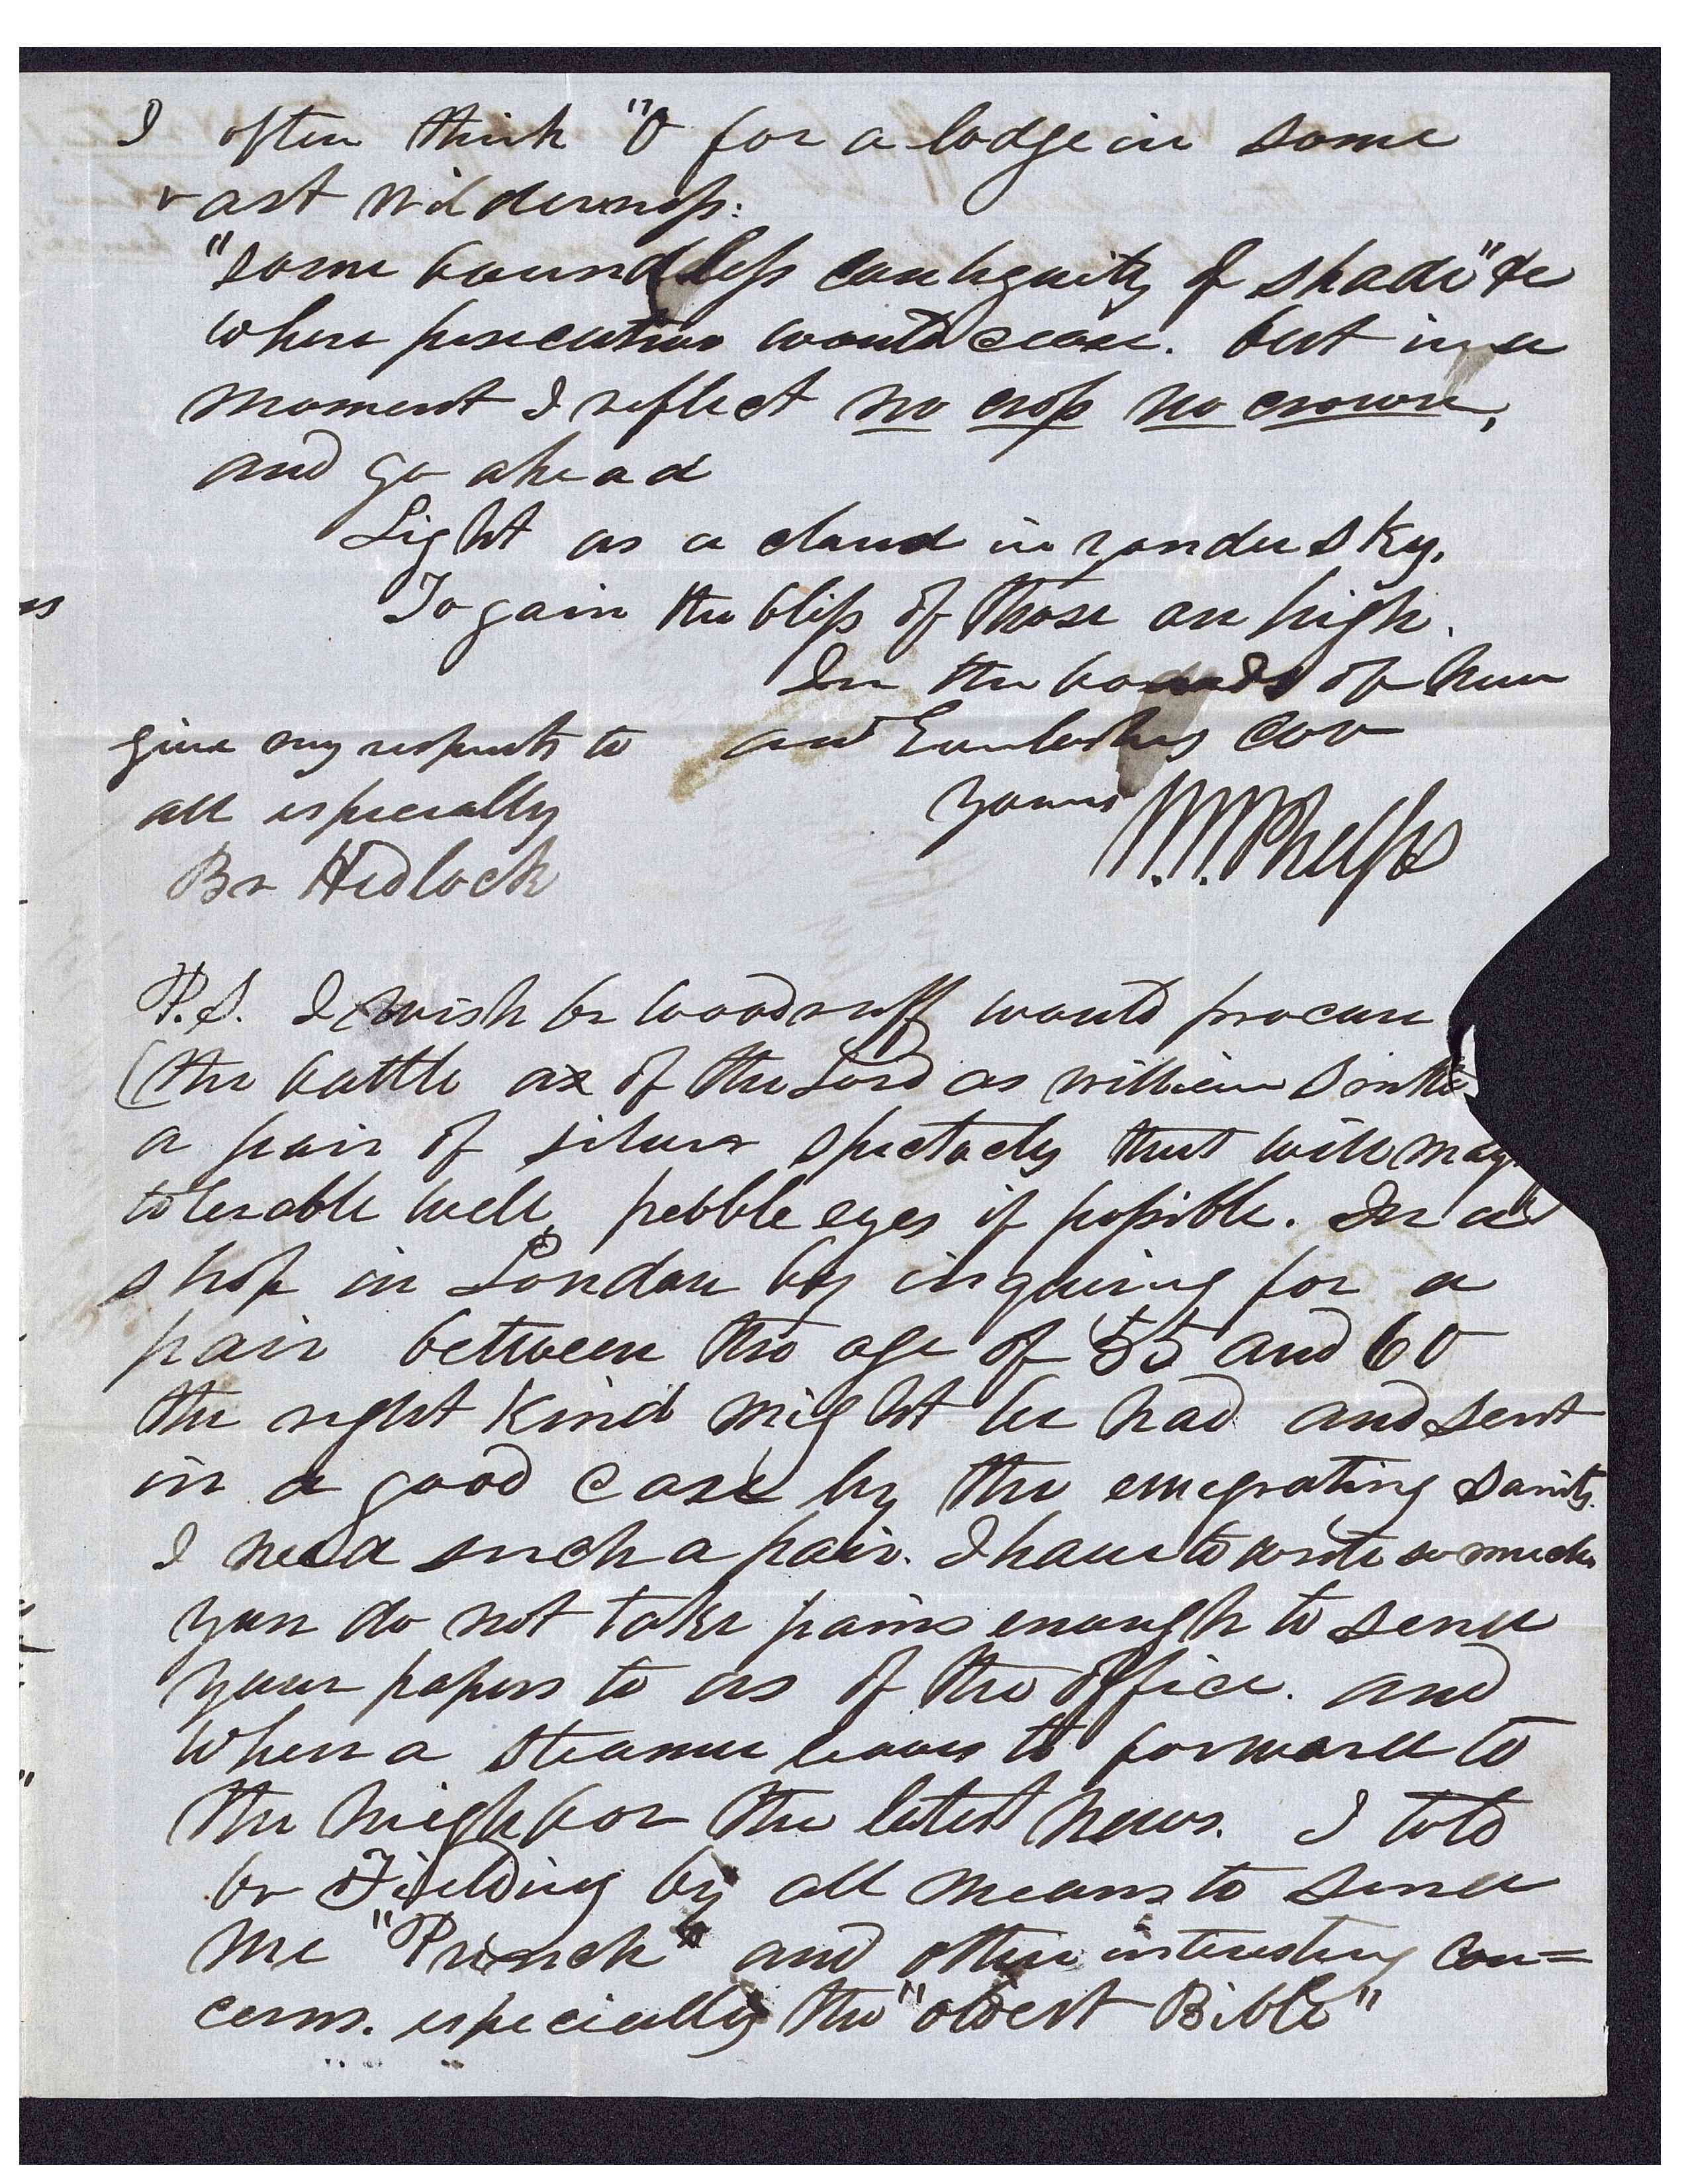 I often think "O for a lodge in some
vast wilderness:
"some boundless contiguity of shade" &c
where persecution would cease. but in a
moment I reflect no cross no crown,
and go ahead
Light as a cloud in yonder sky,
To gain the bliss of those on high.
In the bonds of new
and Everlasting cov
give my respects to
all especially
Br Hedlock
yours W. W. Phelps
P.S. I wish br Woodruff would procure
(the battle ax of the Lord as william Smith
a pair of silver spectacles that will mag
tolerable well, pebble eyes if possible. In a
shop in London by inquiring for a
pair between the age of 55 and 60
the right kind might be had and sent
in a good case by the emegrating saints.
I need such a pair. I have to write so much
you do not take pains enough to send
your papers to us of the office. and
when a steamer leaves to forward to
the neighbor the latest news. I told
br Fielding by all means to send
me "Punch" and other interesting con=
cerns. especially the "oldest Bible"